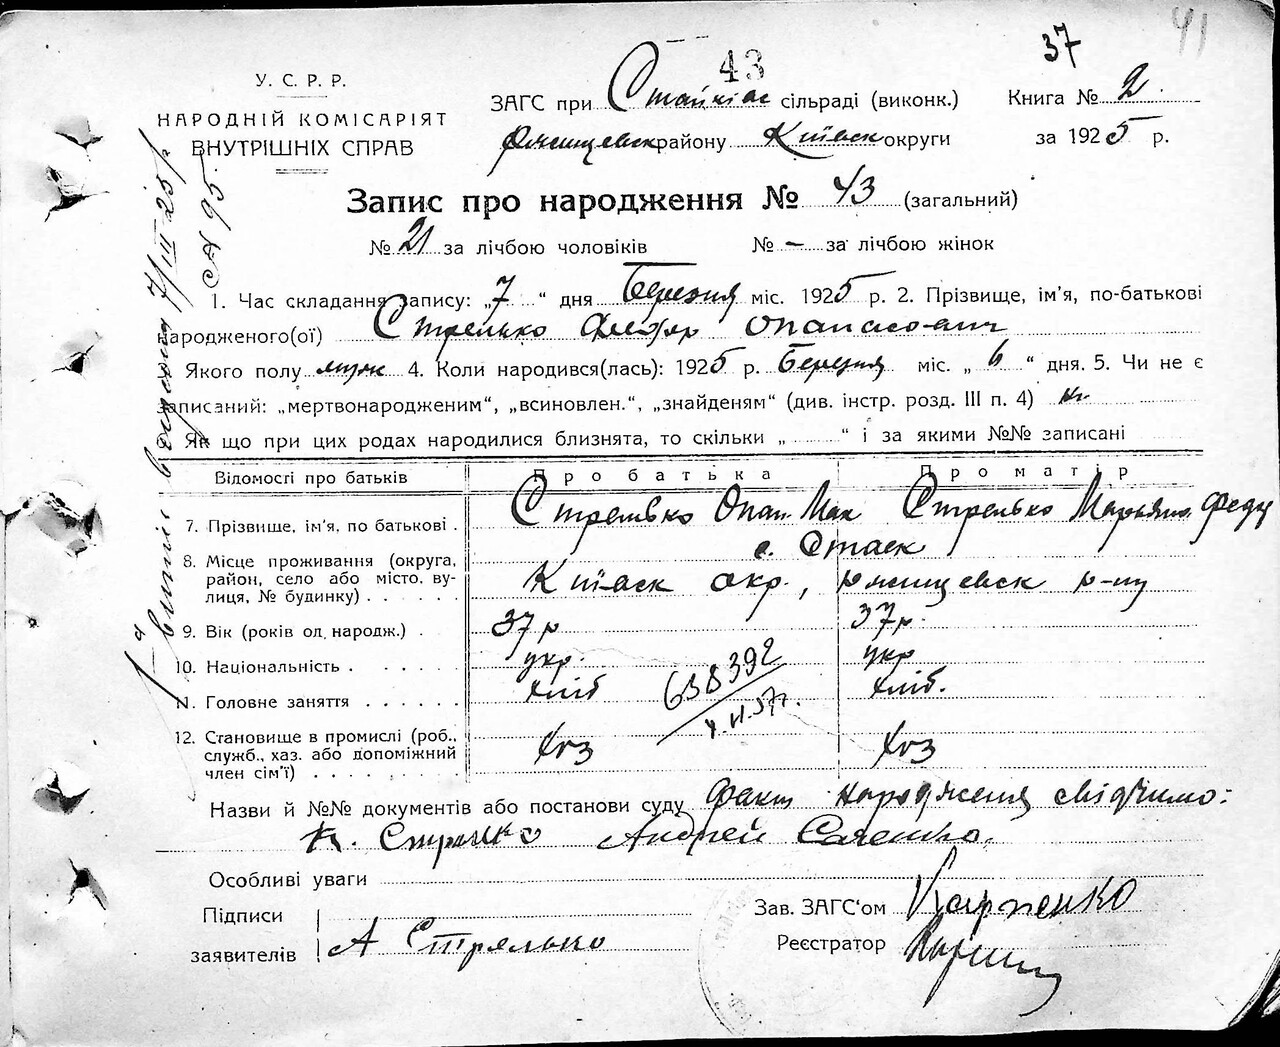 41
37
43
У. С. Р. Р.
НАРОДНІЙ КОМІСАРІЯТ
ВНУТРІШНІХ СПРАВ
ЗАГС при сільраді (виконк.)
району Київськ округи
Книга № 2
за 1925 р.
Запис про народження № 43 (загальний)
№ 21 за лічбою чоловіків № – за лічбою жінок
1. Час складання запису: „7“ дня Березня міс. 1925 р. 2. Прізвище, ім'я, по-батькові
народженого(ої) Стрелько Федор Опанасович
Якого полу муж 4. Коли народився(лась): 1925 р. Березня міс. „6“ дня. 5. Чи не є
записаний: „мертвонародженим“, „всиновлен.“, „знайденям“ (див. інстр. розд. III п. 4) ні
Як що при цих родах народилися близнята, то скільки „ “ і за якими №№ записані
Відомості про батьків Про батька Про матір
7. Прізвище, ім'я, по батькові . Стрелько Опан. Мак Стрелько Марьяна Феду
8. Місце проживання (округа,
район, село або місто, ву-
лиця, № будинку) . . . . . .
с.
Київськ окр., р-ну
9. Вік (років од народж.) . 37 р 37 р.
10. Національність . . . . . . укр. укр
11. Головне заняття . . . . . . хліб хліб.
638392
12. Становище в промислі (роб.,
служб., хаз. або допоміжний
член сім'ї) . . . . . . . .
хоз хоз
Назви й №№ документів або постанови суду Факт народження свідчимо:
Андрей
Особливі уваги
Підписи
заявителів А Стрелько
Зав. ЗАГС'ом Карпенко
Реєстратор